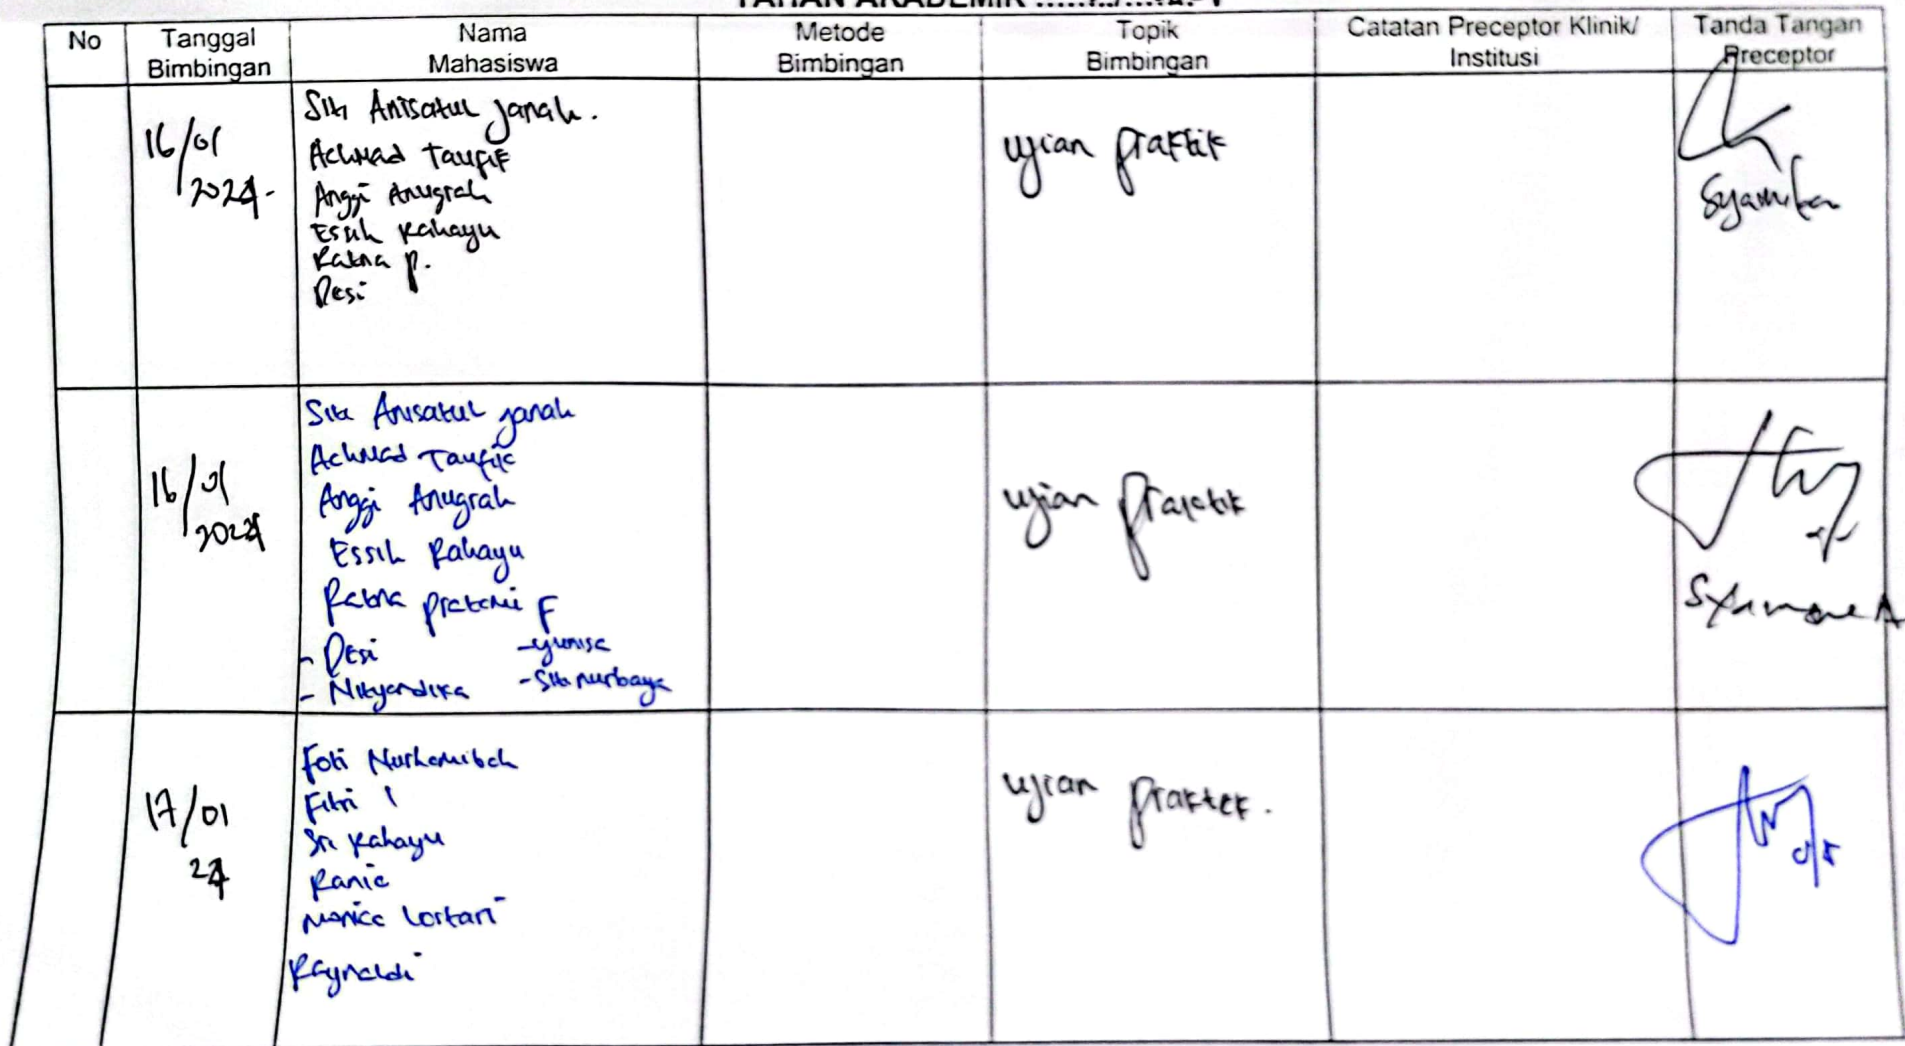 No
Tanggal Bimbingan
Nama Mahasiswa
Metode Bimbingan
Topik Bimbingan
Catatan Preceptor Klinik/ Institusi
Tanda Tangan Preceptor
16/01
2024-
Siti Anisatul Janah.
Achmad Taufik
Anggi Anugrah
Essih Rahayu
Ratna P.
Desi
ujian praktik
16/01
2024
Siti Anisatul Janah
Achmad Taufik
Anggi Anugrah
Essih Rahayu
Ratna Pratami F
- Desi
- yunisa
- Nityandika
- Siti nurbaya
ujian praktik
17/01
24
Fitri
Sri Rahayu
Rania
Monica Lestari
Raynaldi
ujian praktek.